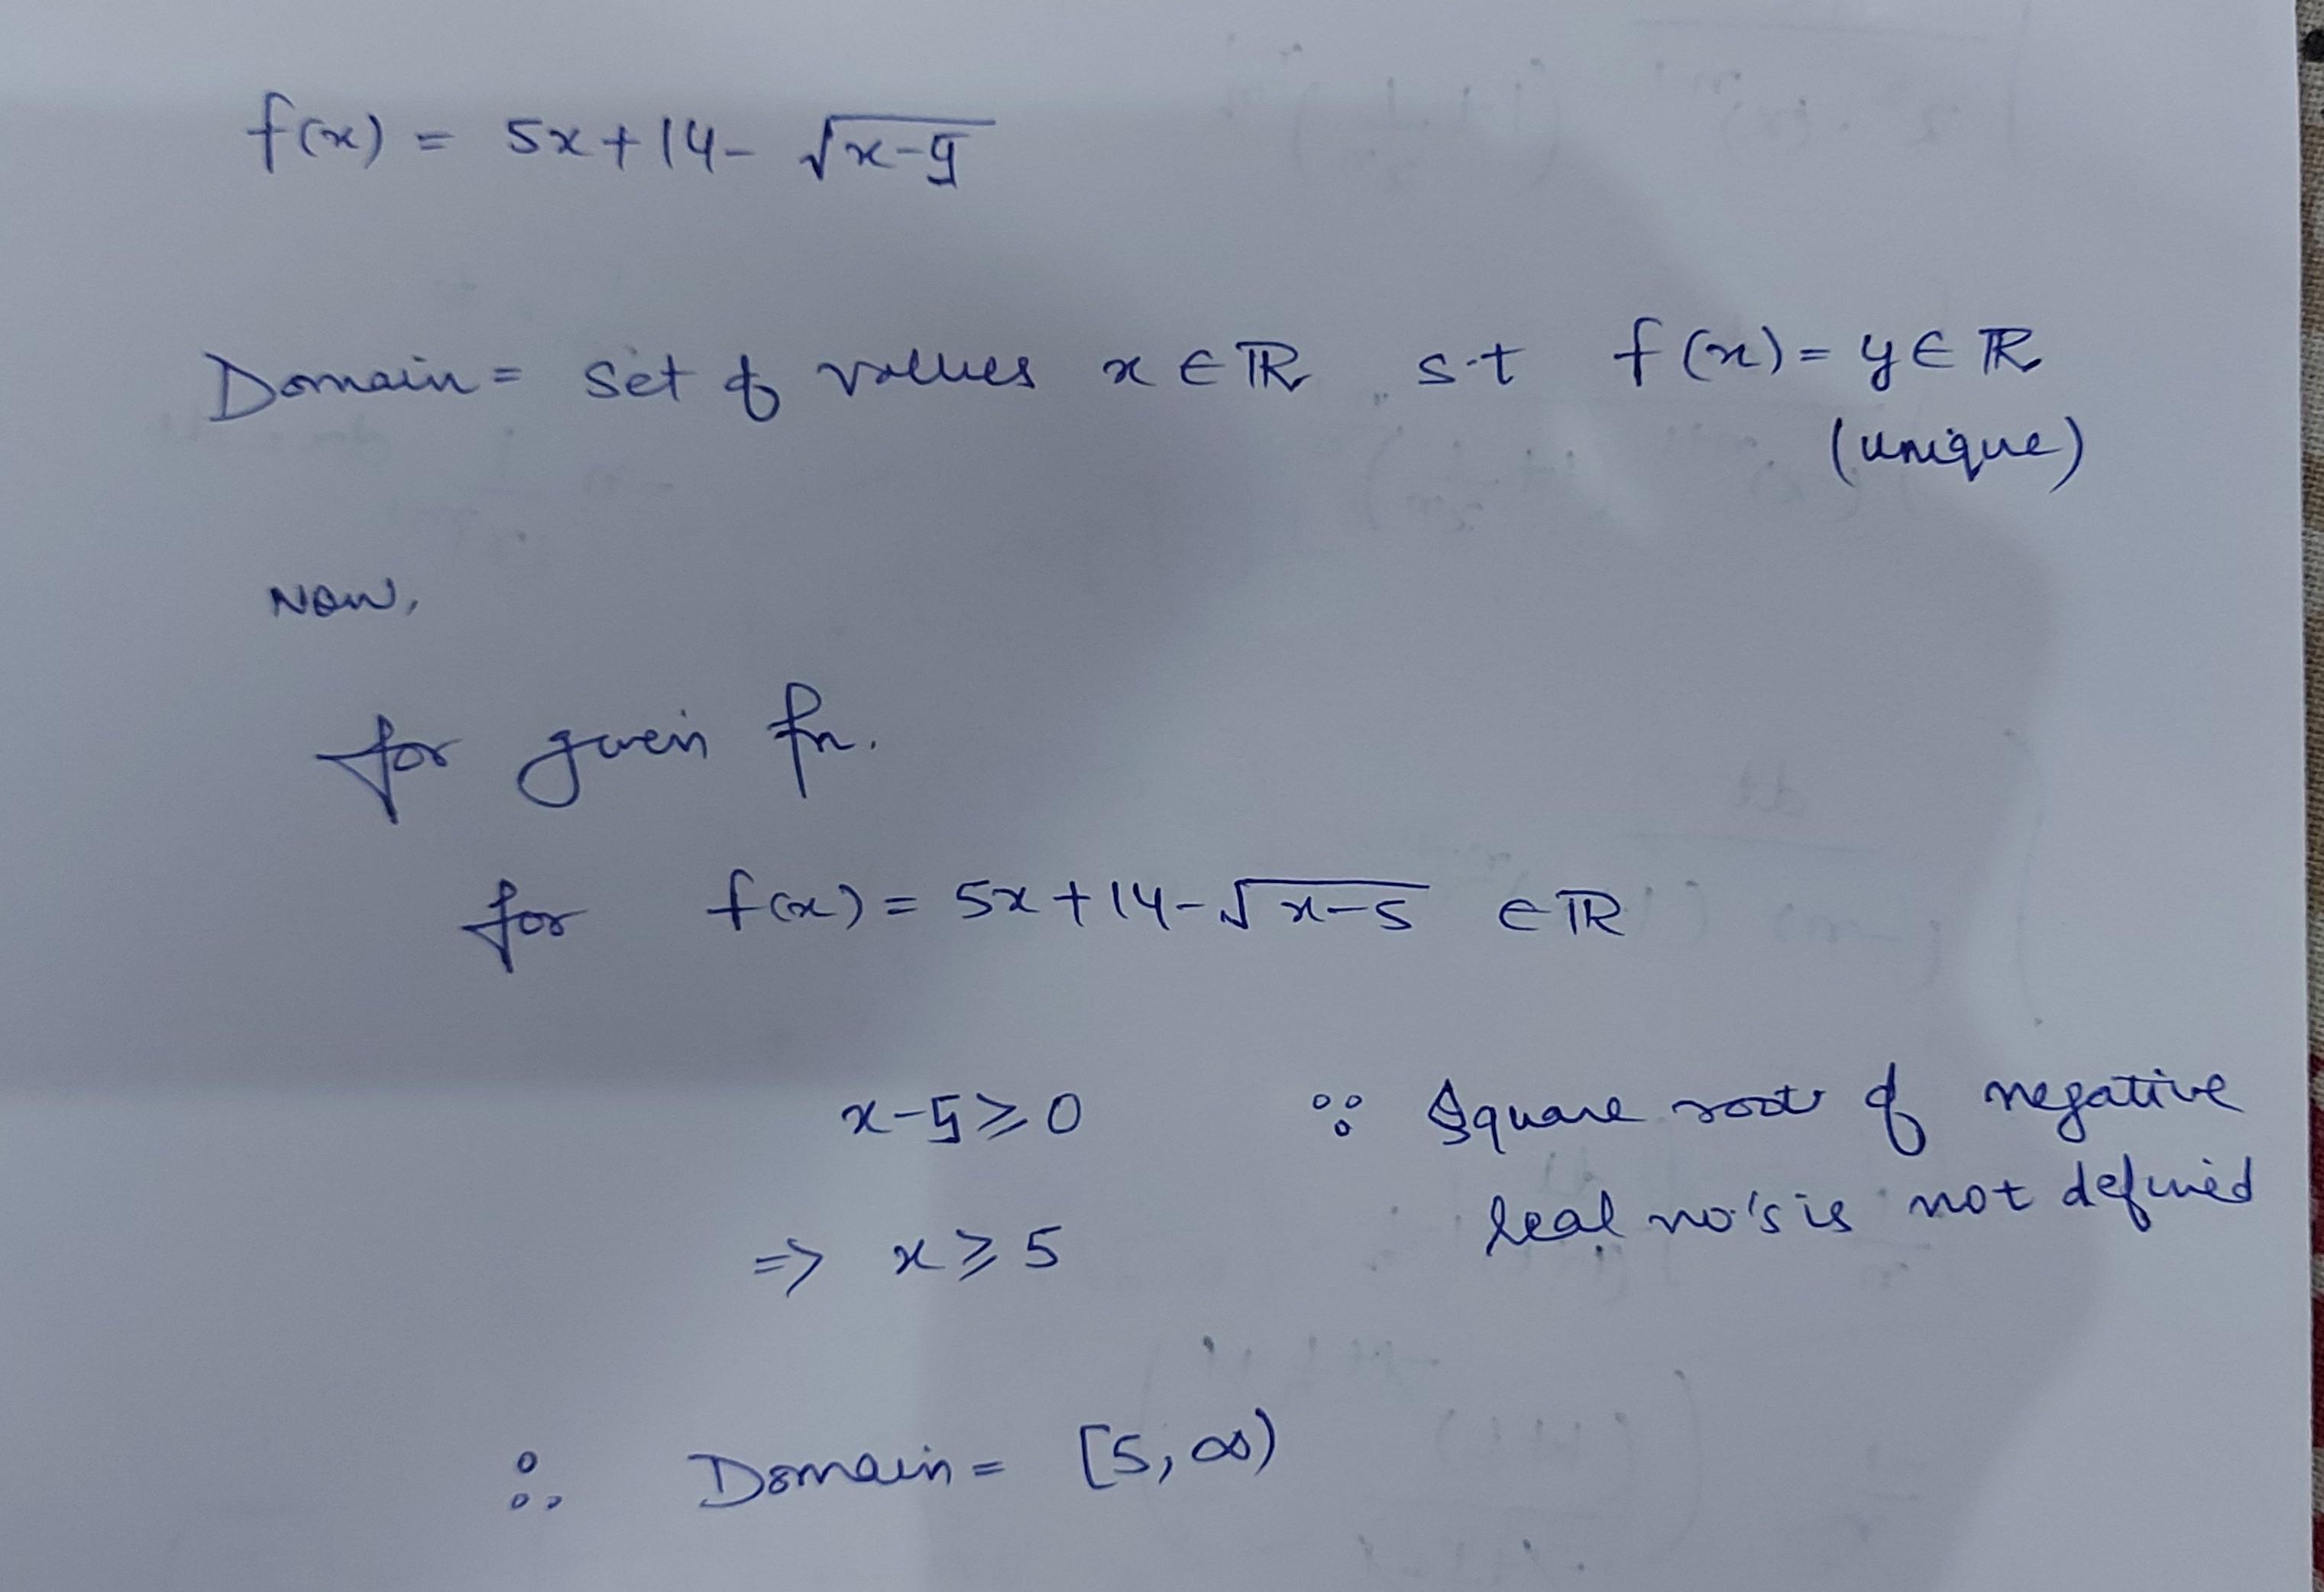 f(x) = 5x+14-√x-5
Domain = set of values x ∈ ℝ s.t f(x) = y ∈ ℝ
(unique)
Now,
for given fn.
for f(x) = 5x+14-√x-5 ∈ ℝ
x-5 ⩾ 0 ∵ Square root of negative
real no's is not defined
=> x ⩾ 5
∴ Domain = [5, ∞)